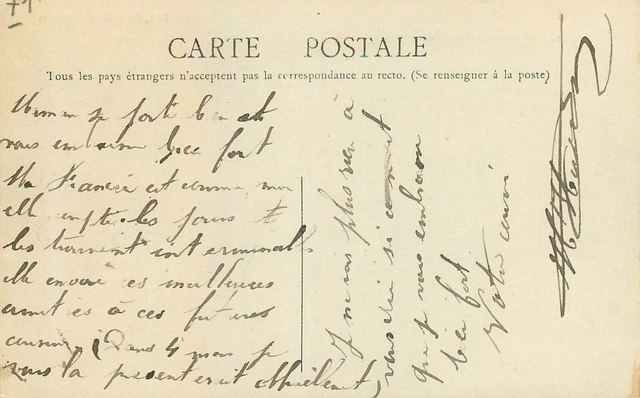 CARTE POSTALE
Tous les pays étrangers n'acceptent pas la correspondance au recto. (Se renseigner à la poste)
se porte bien et
vous embrasse bien fort
Ma Fiancée est comme moi
elle compte les jours et
les trouvent interminables
elle envoie ses meilleures
amitiés à ces futures
cousines (Dans 4 mois je
vous la présenterait officiellement)
Je ne vois plus rien à
vous dire si ce n'est
que je vous embrasse
bien fort
Votre cousin